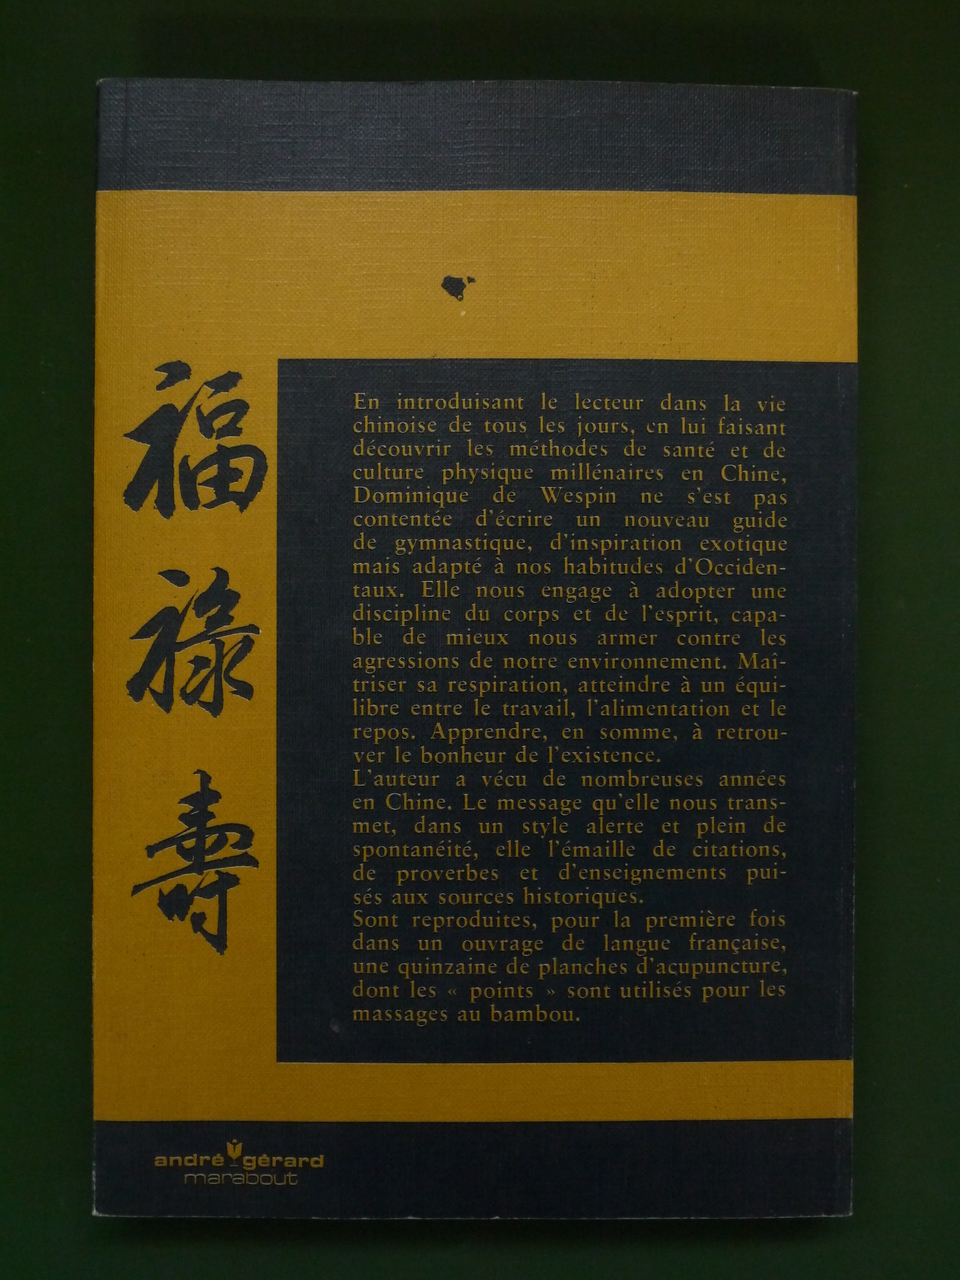 福
禄
壽
En introduisant le lecteur dans la vie
chinoise de tous les jours, en lui faisant
découvrir les méthodes de santé et de
culture physique millénaires en Chine,
Dominique de Wespin ne s'est pas
contentée d'écrire un nouveau guide
de gymnastique, d'inspiration exotique
mais adapté à nos habitudes d'Occiden-
taux. Elle nous engage à adopter une
discipline du corps et de l'esprit, capa-
ble de mieux nous armer contre les
agressions de notre environnement. Maî-
triser sa respiration, atteindre à un équi-
libre entre le travail, l'alimentation et le
repos. Apprendre, en somme, à retrou-
ver le bonheur de l'existence.
L'auteur a vécu de nombreuses années
en Chine. Le message qu'elle nous trans-
met, dans un style alerte et plein de
spontanéité, elle l'émaille de citations,
de proverbes et d'enseignements pui-
sés aux sources historiques.
Sont reproduites, pour la première fois
dans un ouvrage de langue française,
une quinzaine de planches d'acupuncture,
dont les « points » sont utilisés pour les
massages au bambou.
andré gérard
marabout